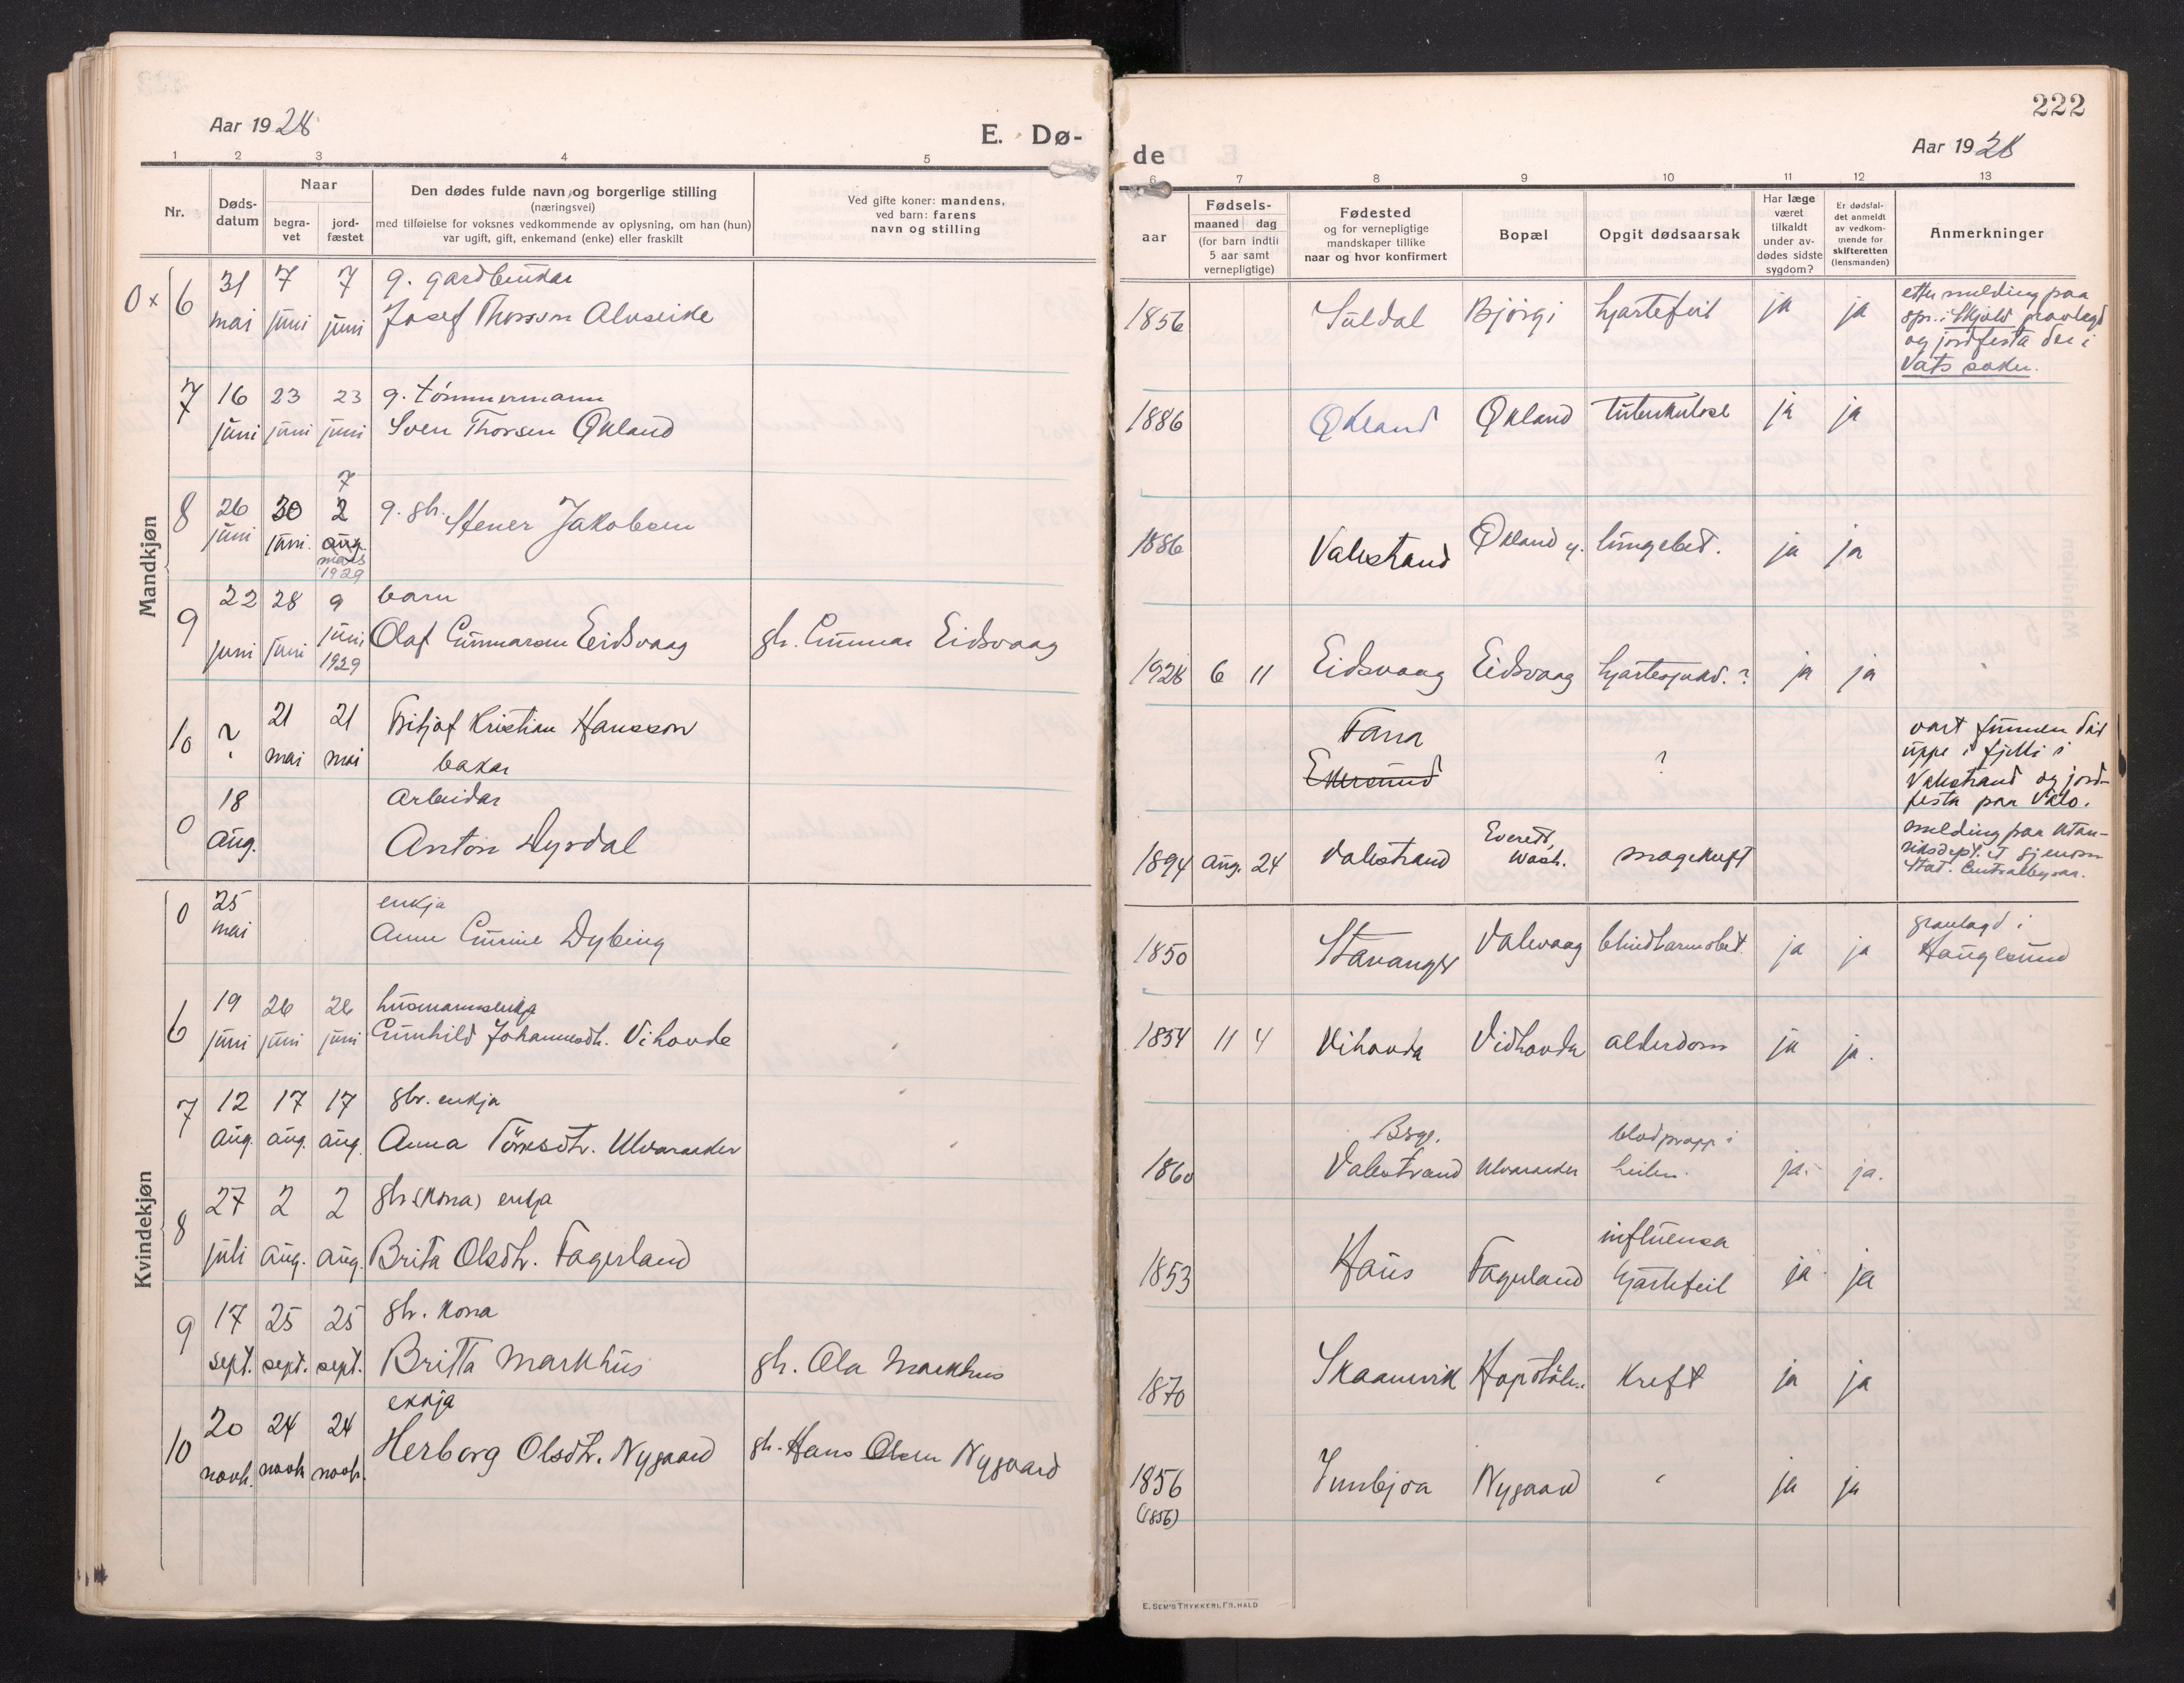 Aar 1928
E. Dø-
1 2 3 4 5
Nr.
Døds-
datum
Naar
begra-
vet
jord-
fæstet
Den dødes fulde navn og borgerlige stilling
(næringsvei)
med tilføielse for voksnes vedkommende av oplysning, om han (hun)
var ugift, gift, enkemand (enke) eller fraskilt
Ved gifte koner: mandens,
ved barn: farens
navn og stilling
Mandkjøn
0 x 6 31 7 7 g. gardbrukar
mai juni juni Josef Thorsen Alvseike
7 16 23 23 g. tömmermann
juni juni juni Sven Thorsen Økland
7
8 26 30 2 g. gbr. Stener Jakobsen
juni juni. aug.
mars
1929
9 22 28 9 barn
juni juni juni Olaf Gunnarsen Eidsvaag gbr. Gunnar Eidsvaag
1929
10 ? 21 21 Fritjof Kristian Hansson
mai mai bakar
0 18 arbeidar
aug. Anton Dyrdal
Kvindekjøn
0 25 enkja
mai Anne Gurine Dybing
6 19 26 26 husmannsenkja
juni juni juni Gunhild Johannesdtr. Vihovde
7 12 17 17 gbr. enkja
aug. aug. aug. Anna Törresdtr. Ulvaraaker
8 27 2 2 gbr (kona) enkja
juli aug. aug. Brita Olsdtr. Fagerland
9 17 25 25 gbr. kona
sept. sept. sept. Britta Markhus gbr. Ola Markhus
10 20 24 24 enkja
novb. novb. novb. Herborg Olsdtr. Nygaard gbr. Hans Olsen Nygaard
222
de
Aar 1928
6 7 8 9 10 11 12 13
aar
Fødsels-
maaned dag
(for barn indtil
5 aar samt
vernepligtige)
Fødested
og for vernepligtige
mandskaper tillike
naar og hvor konfirmert
Bopæl
Opgit dødsaarsak
Har læge
været
tilkaldt
under av-
dødes sidste
sygdom?
Er dødsfal-
det anmeldt
av vedkom-
mende for
skifteretten
(lensmanden)
Anmerkninger
1856 Suldal Bjórgi hjartefeil ja ja
etter melding paa
spr. i Skjold gravlagd
og jordfesta der i
Vats sokn.
1886 Økland Økland tuberkulose ja ja
1886 Valestrand Økland y. lungebet. ja ja
1928 6 11 Eidsvaag Eidsvaag hjartesjukd. ? ja ja
Fana
Ekersund ?
vart funnen död
uppe i fjelli i
Valestrand og jord-
festa paa Valo.
1894 aug. 24 Valestrand Everett, Wash. magekreft
melding fraa utan-
riksdept. et gjenom
Stat. Centralbyraa.
1850 Stavanger Valevaag blindtarmsbet. ja ja
gravlagd i
Haugesund
1854 11 4 Vihovda Vidhovda alderdom ja ja.
1860 Brgr. Valestrand Ulvaraaker blodpropp i
heilen. ja. ja.
1853 Haus Fagerland influensa
hjartefeil ja ja
1870 Skaanevik Hopstöle. kreft ja ja
1856 Innbjoa Nygaard ja ja
(1856)
E. SEM'S TRYKKERI, FR.HALD